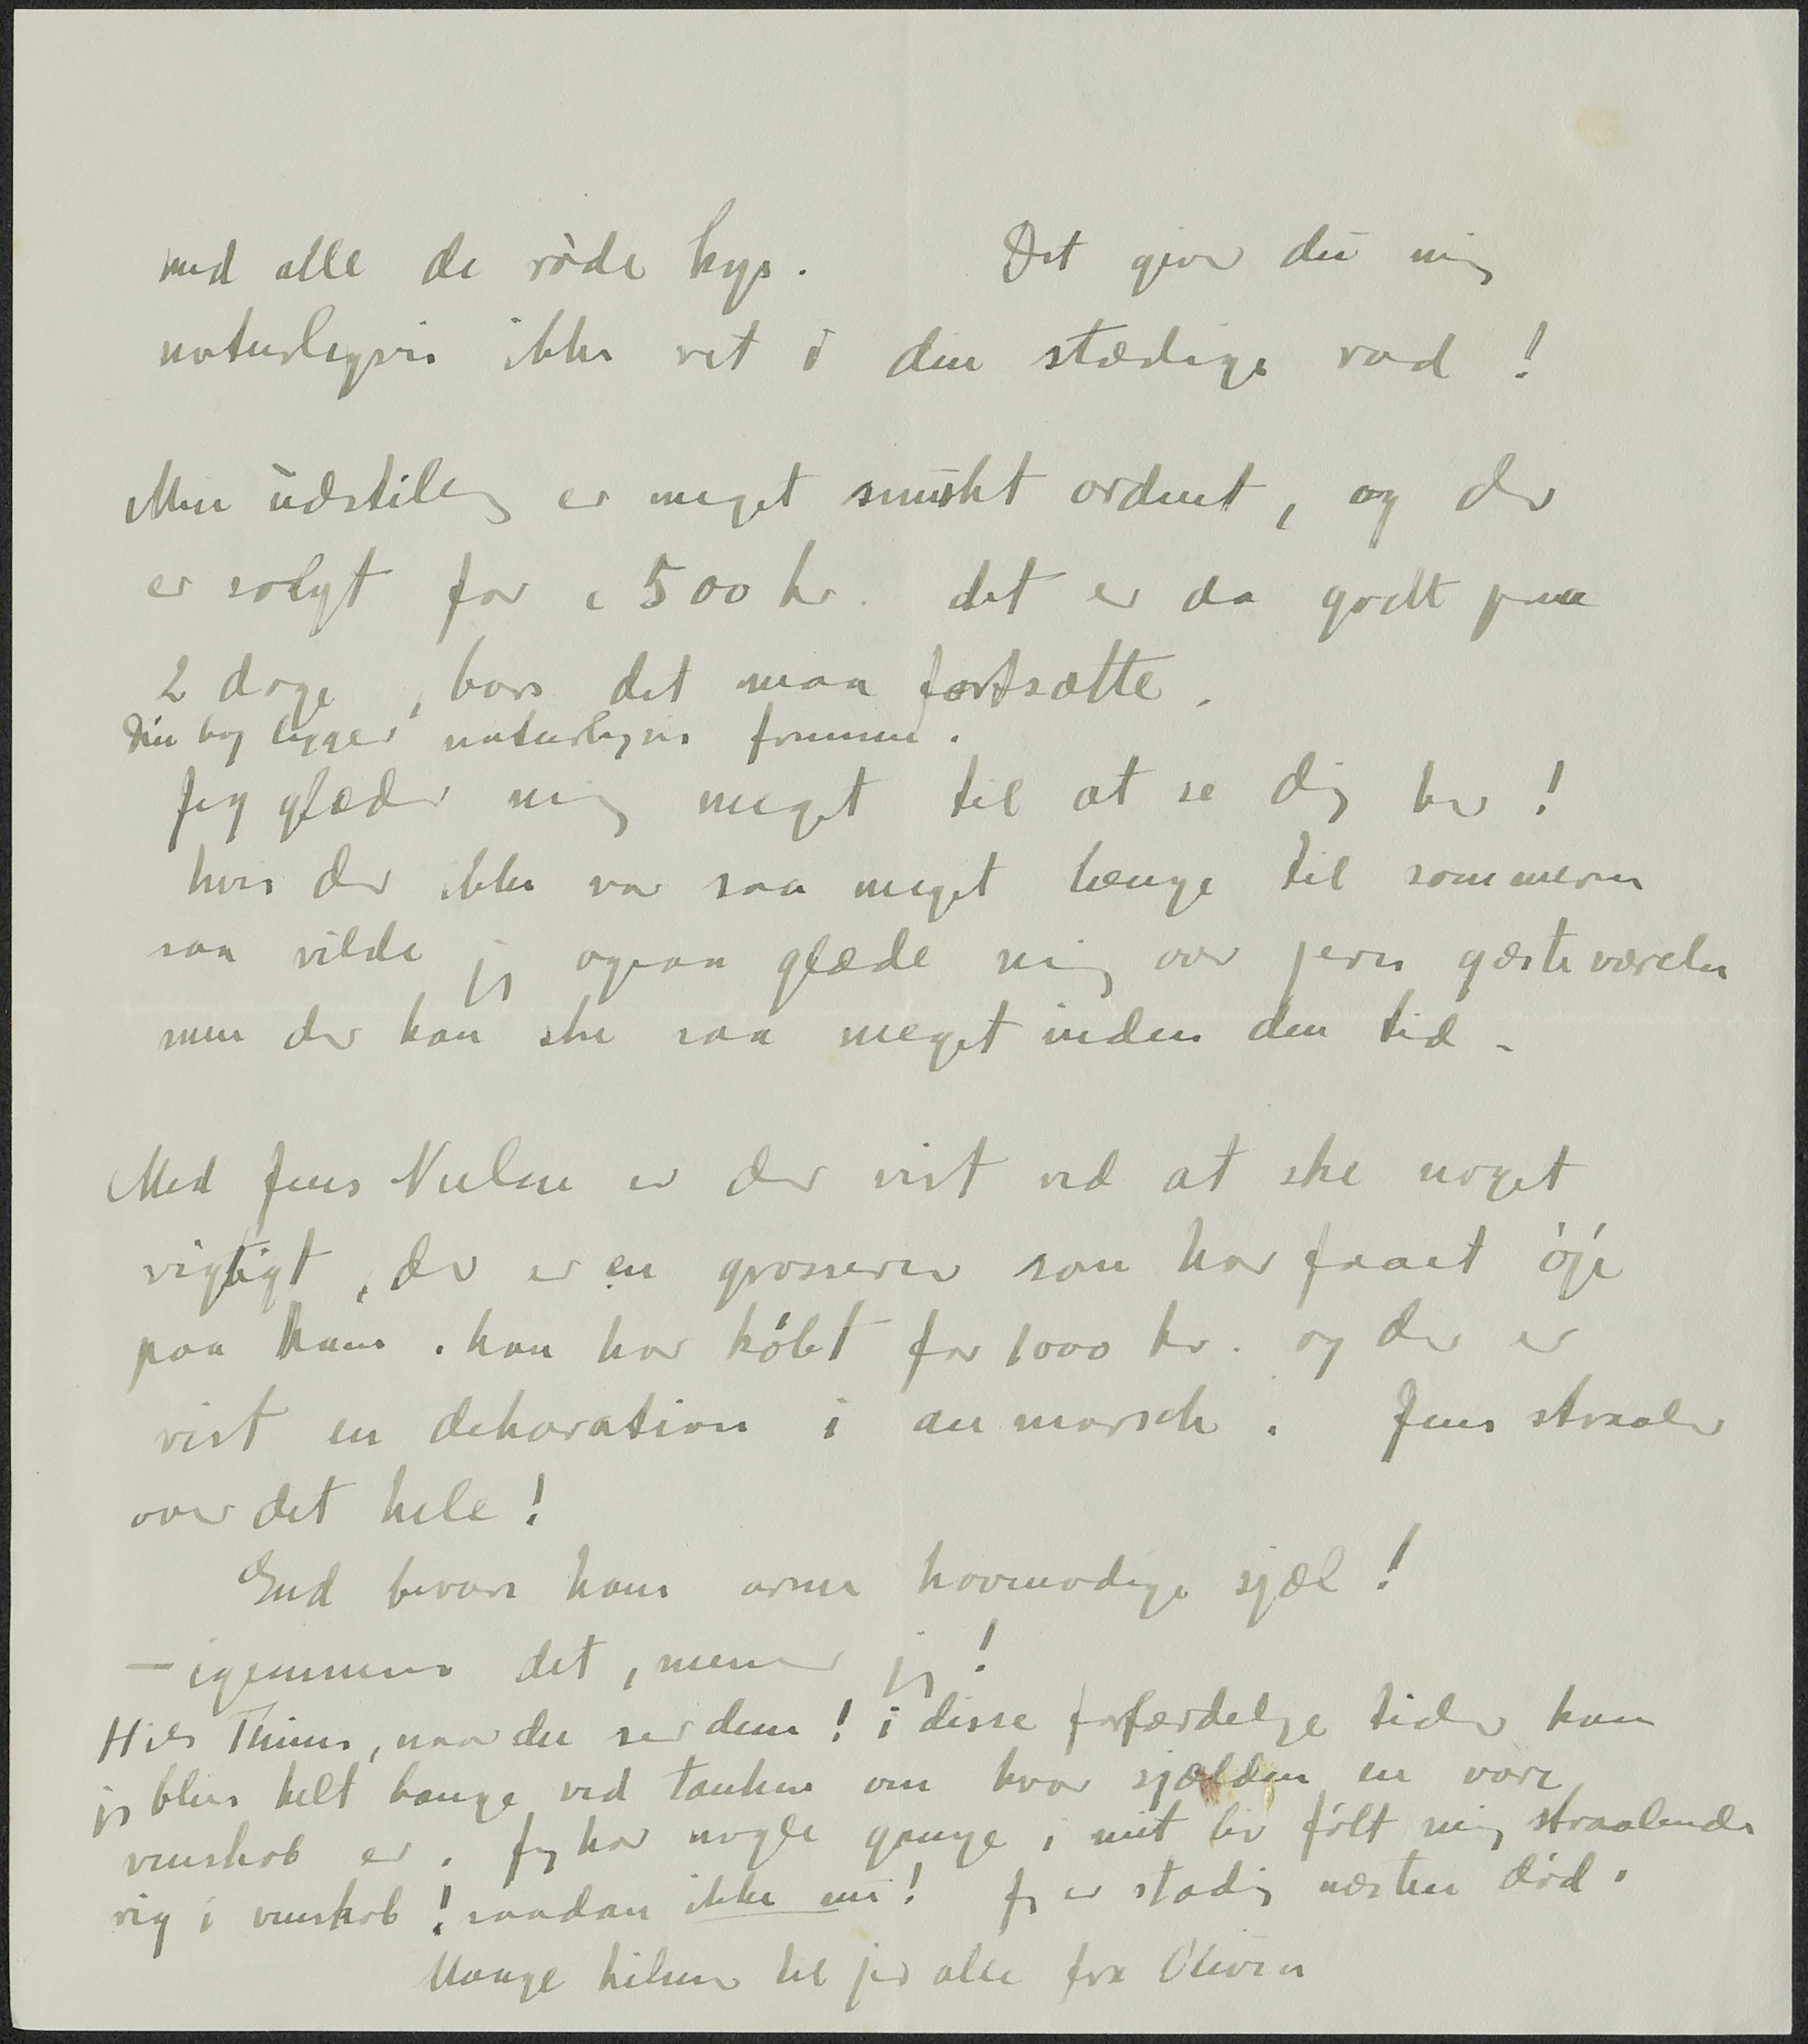 med alle de røde kys. Det giver du mig
naturligvis ikke ret i din stædige rad!
Min udstilling er meget smukt ordnet, og der
er solgt for c 500 kr. det er da godt paa
2 dage, bare det maa fortsætte.
Din bog ligger naturligvis fremme.
Jeg glæder mig meget til at se dig her!
hvis der ikke var saa meget længe til sommeren
saa vilde jeg ogsaa glæde mig over jeres gæsteværelse
men der kan ske saa meget inden den tid -
Med Jens Nielsen er der vist ved at ske noget
vigtigt, der er en grosserer som har faaet øje
paa ham. han har købt for 1000 kr. og der er
vist en dekoration i anmarsch. Jens straaler
over det hele!
Gud bevare hans arme hovmodige sjæl!
— igennem det, mener jeg!
Hils Thiners, naar du ser dem! i disse forfærdelige tider kan
jeg blive helt bange ved tanken om hvor sjælden en vare
venskab er. Jeg har nogle gange i mit liv følt mig straalende
rig i venskab! saadan ikke nu! Jeg er stadig næsten død.
Mange hilsner til jer alle fra Olivia